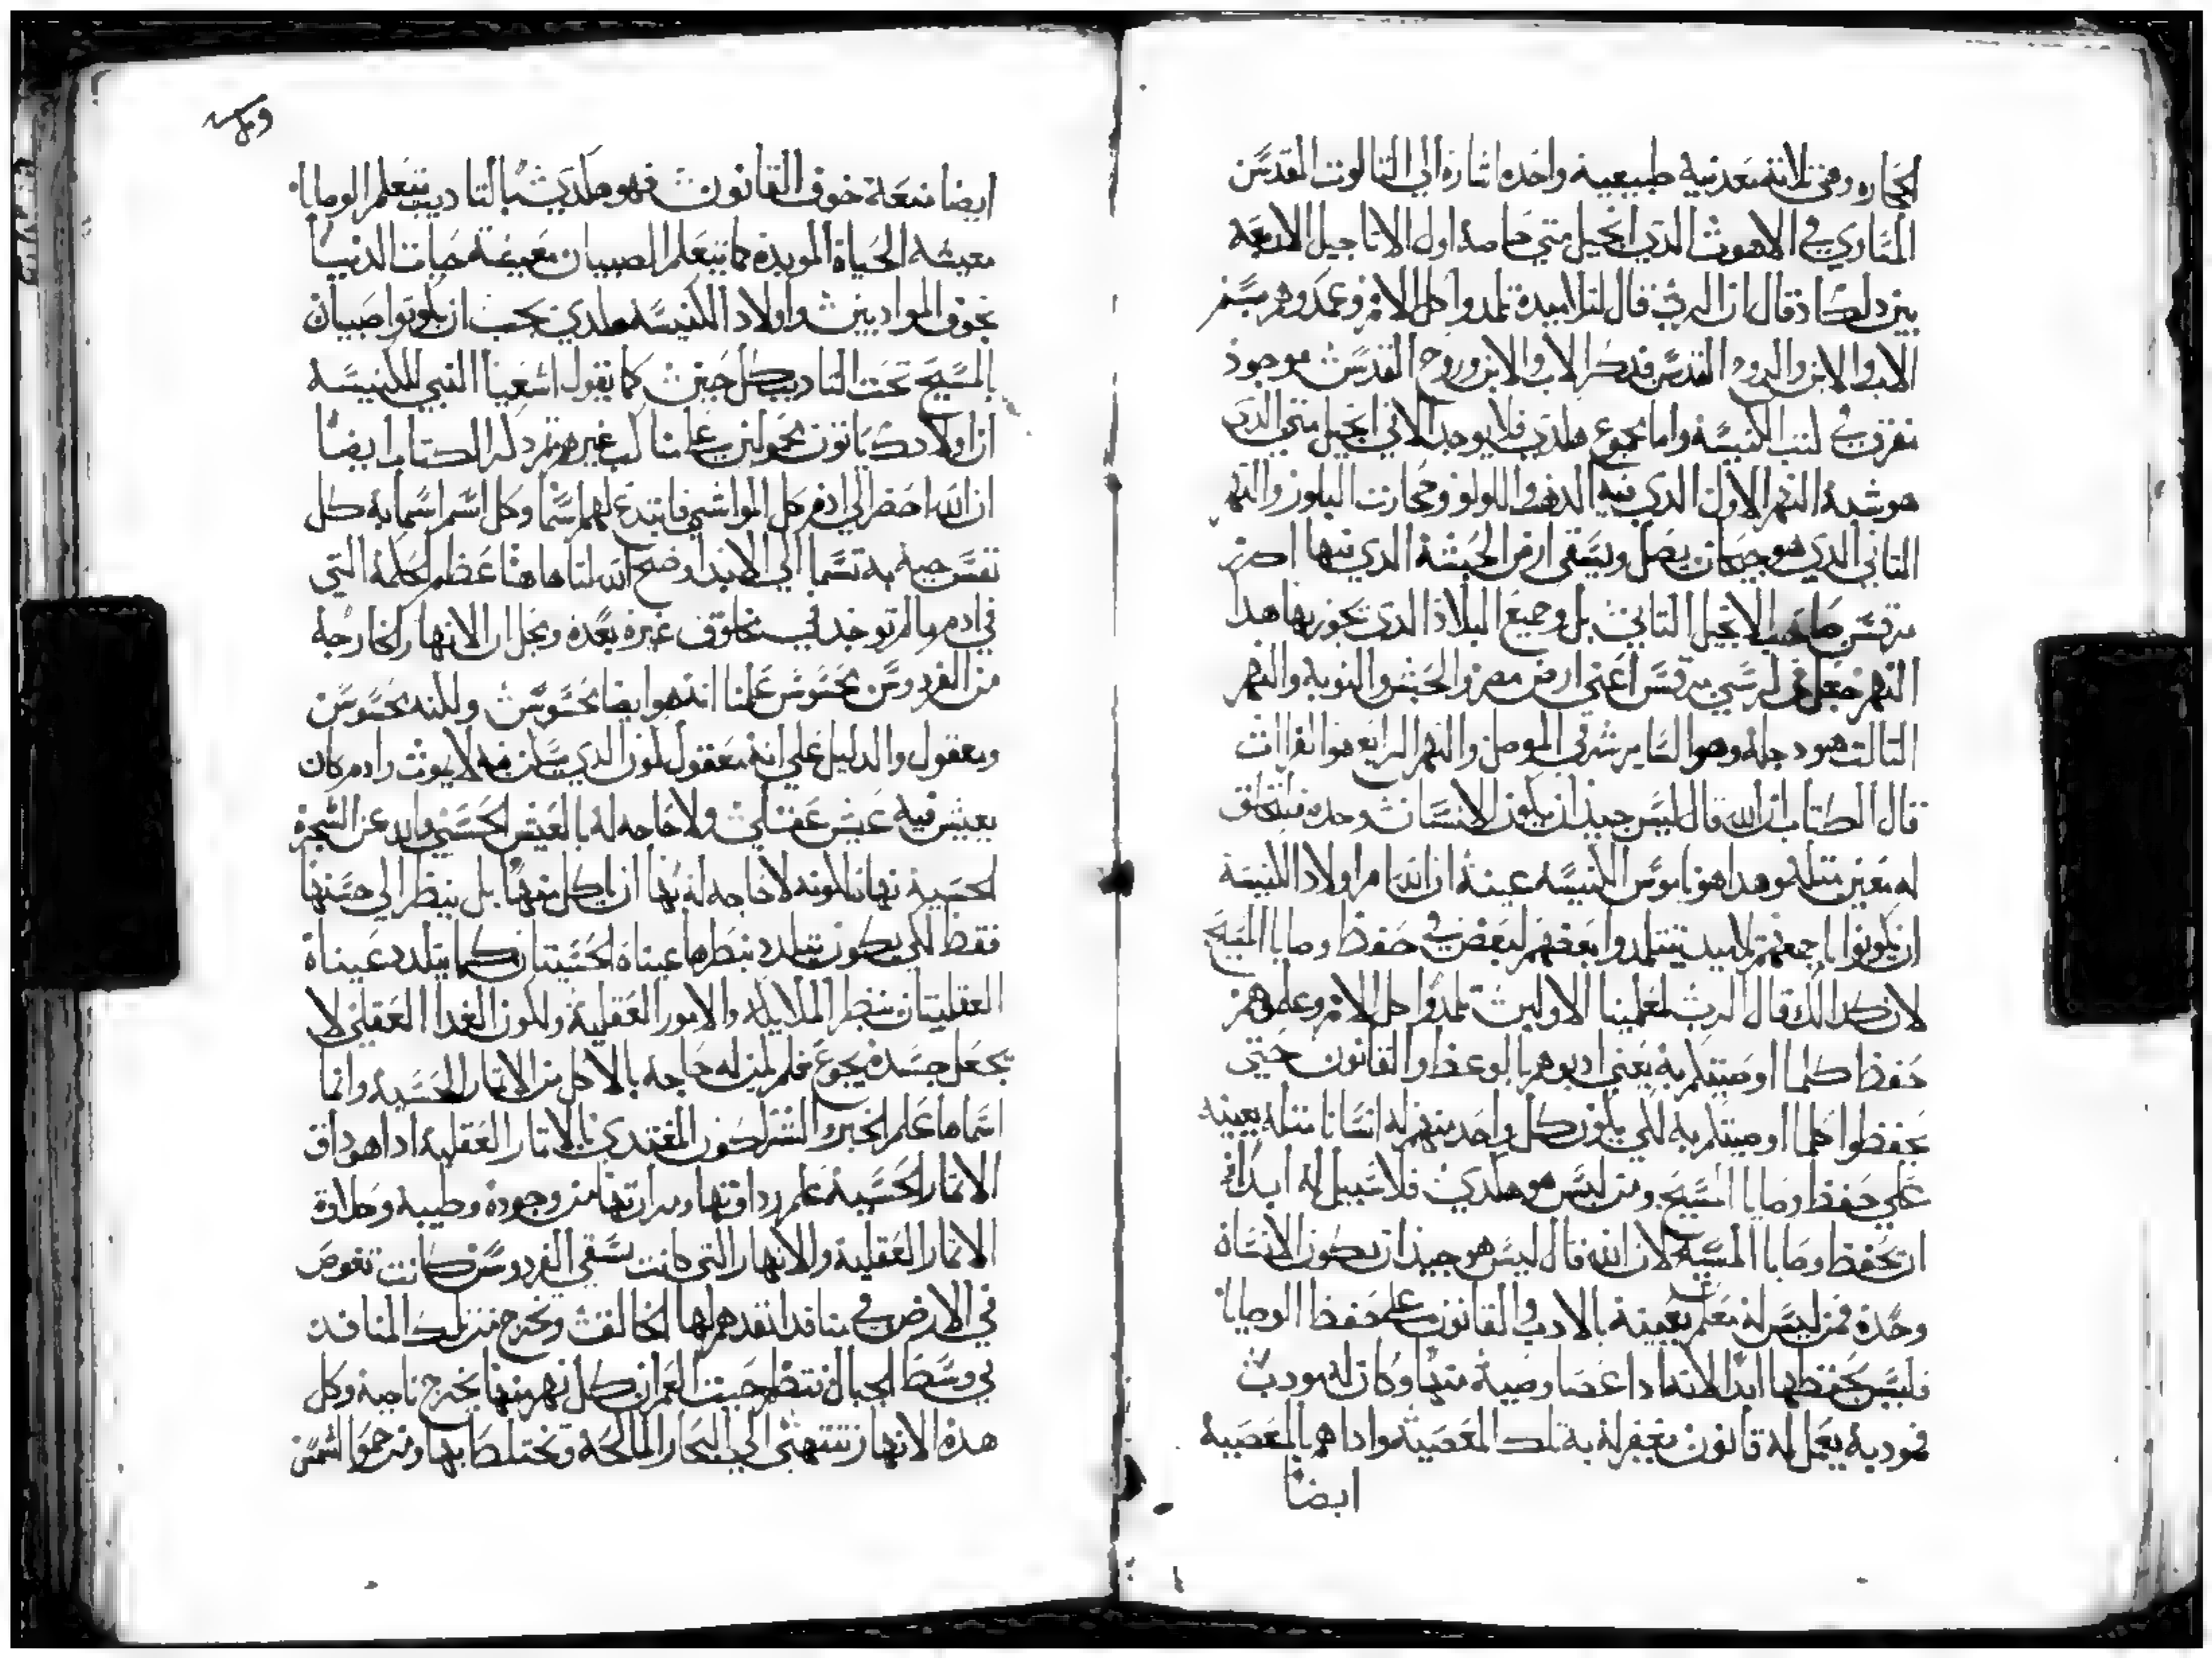 الحجاره وهي ثلاثه معدنيه طبيعيه واحده اشاره الي التالوت المقدس
المتاوي في الاهوت الدي انجيل متي هاهنا اول الاناجيل الاربعه
قال ان الرب قال لتلاميده تلمدوا كل الامم وعمدوهم بسم
الاب والابن والروح القدس فدكر الاب والابن وروح القدس موجود
مفرق في كتب الكنيسه واما مجموع هكدي فلا يوجد الا في انجيل متي الدي
هو شبه النهر الاول الدي فيه الدهب واللولو وحجارت البلور والنهر
التاني الدي هو جيحان يصل ويسقي ارض الحبشه الدي فيها اكرز
مرقس صاحب الانجيل التاني بل وجميع البلاد الدي يجوز بها هدا
النهر جعل في كرسي مرقس اعني ارض مصر والحبش والنوبه والنهر
التالت هو دجله وهو الساير شرقي الموصل والنهر الرابع هو الفرات
قال الكتاب ان الله قال ليس جيد ان يكون الانسان وحده فلنخلق
له معين متله وهدا هو ناموس الكنيسه عينه ان الله امر اولاد الكنيسه
ان يكونوا باجمعهم تلاميد يتتلمدوا بعضهم لبعض في حفظ وصايا المسيح
لان كدالك قال الرب لمعلمينا الاولين تلمدوا كل الامم وعلموهم
حفظ كلما اوصيتكم به يعني ادبوهم بالوعظ والقانون حتي
يحفظوا كلما اوصيتكم به لكي يكون كل واحد منهم له انسانا متله يعينه
علي حفظ وصايا المسيح ومن ليس هو هكدي فلا سبيل له ابدا
ان يحفظ وصايا المسيح لان الله قال ليس هو جيد ان يكون الانسان
وحده فمن ليس له معلم يعينه بالادب والقانون علي حفظ الوصايا
فليس يحفظها ابدا لانه ادا عصا وصية منها وكان له مودب
فمودبه يعمل له قانون يغفر له به تلك المعصيه وادا هم بالمعصيه
ايضا
ايضا منعه خوف القانون فهو هكدي بالتاديب يتعلم الوصايا
معيشه الحياة الموبده كما يتعلم الصبيان معيشة حيات الدنيا
بخوف الموادبين واولاد الكنيسه هكدي يجب ان يكونوا صبيان
بالمسيح تحت التاديب كل حين كما يقول اشعيا النبي للكنيسه
ان اولادك ياتون محمولين علي مناكب غيرهم تم دكر الكتاب ايضا
ان الله احضر الي ادم كل المواشي فابتدع لهم اسما وكل اسم اسمابه كل
نفس حيه به تسما الي الابد اوضح الله لنا هاهنا عظم الحكمة التي
في ادم ما لم توجد في مخلوق غيره بعده ونجل ان الانهار الخارجة
من الفردوس محسوس علمنا انه هو ايضا محسوس ولكنه محسوس
ومعقول والدليل علي انه معقول لكون الدي يسكن فيه لا يموت وادم كان
يعيش فيه عيش عقلي ولا حاجه له بالعيش الحسي وابعد عن الشجرة
الحسية نهاه لكونه لا حاجه له بها ان ياكل منها بل ينظر الي حسنها
فقط لكي يكون يتلدد بنظرها عيناه الحسيتان كما يتلدد عيناه
العقليتان بنظر الملايكه والامور العقلية ولكون الغدا العقلي لا
يجعل جسده يجوع فلم يكن له حاجه بالاكل من الاتمار الحسيه وانما
اسماها علم الخير والشر لكون المغتدي بالاتمار العقليه ادا هو داق
الاتمار الحسية علم رداوتها ومرارتها من وجودة وطيبة وحلاوة
الاتمار العقلية والانهار التي كانت تسقي الفردوس كانت تغوص
في الارض في منافد لقدهم لها الخالق وتخرج من تلك المنافد
في وسط الجبال فتنظر حيت العمران كل نهر منها يخرج ناحية وكل
هده الانهار تنتهي الي البحار المالحة وتختلط بها ومن حموا الشمس